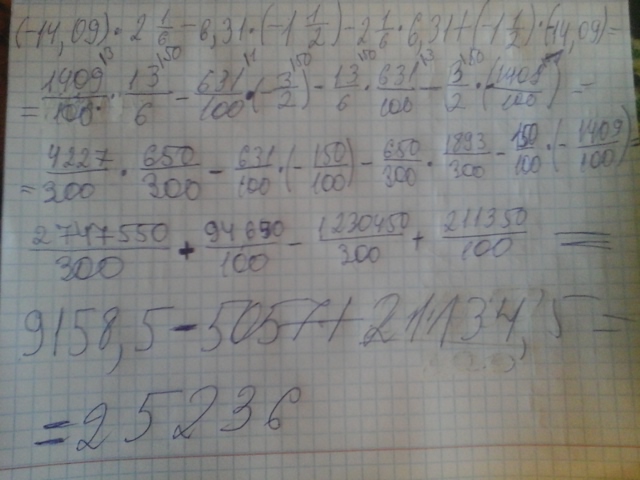 (-14,09)·2 1/6-6,31·(-1 1/2)-2 1/6·6,31+(-1 1/2)·(-14,09)=
=1409/100·13/6-631/100·(-3/2)-13/6·631/100-3/2·(1409/100)=
=4227/300·650/300-631/100·(-150/100)-650/300·1893/300-150/100·(-1409/100)=
2747550/300+94650/100-1230450/300+211350/100=
9158,5-5057+21134,5=
=25236